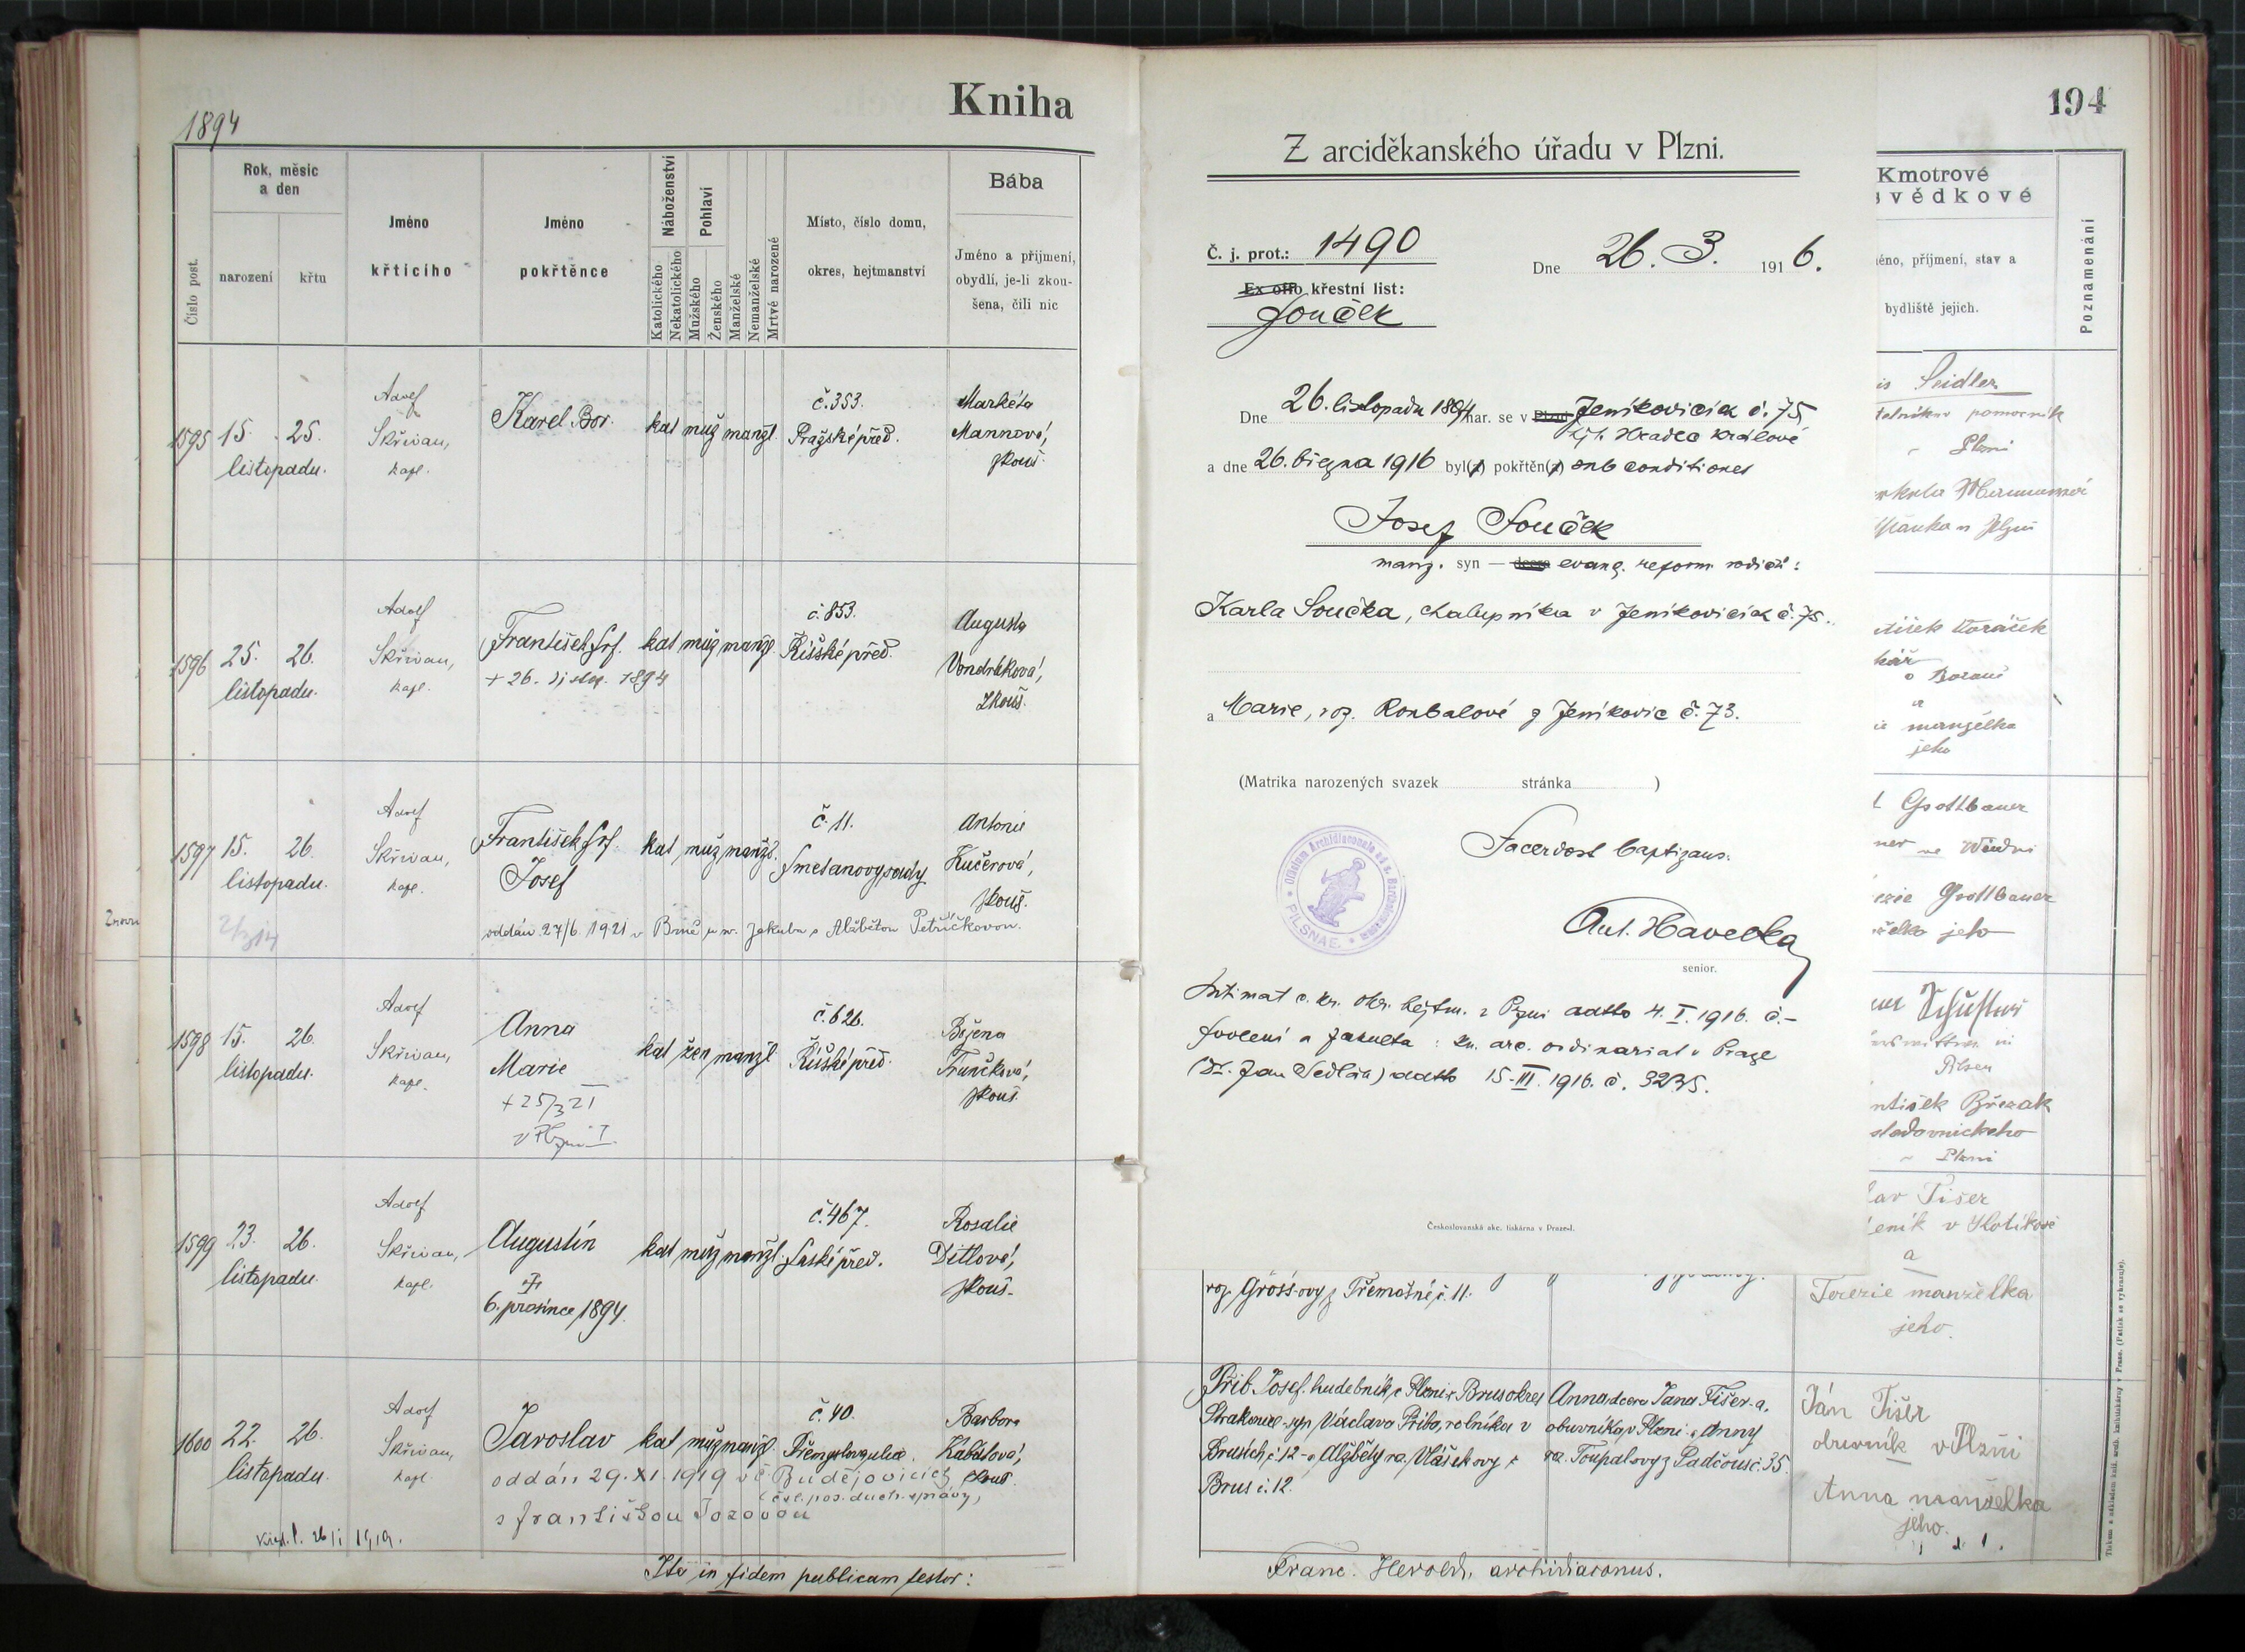 Kniha
1894
Číslo post.
Rok, měsíc
a den
narození
křtu
Jméno
křticího
Jméno
pokřtěnce
Náboženství
Katolického
Nekatolického
Pohlaví
Mužského
Ženského
Manželské
Nemanželské
Mrtvě narozené
Místo, číslo domu,
okres, hejtmanství
Bába
Jméno a přijmení,
obydlí, je-li zkou-
šena, čili nic
1595 15. 25.
listopadu.
Adolf
Skřivan,
kapl.
Karel Bor.
kat muž manžl.
č. 353.
Pražské před.
Markéta
Mannová,
zkouš.
1596 25. 26.
listopadu.
Adolf
Skřivan,
kapl.
František Srf.
+ 26. listop. 1894
kat muž manžl.
č. 853.
Říšské před.
Augusta
Vondráková,
zkouš.
1597 15. 26.
listopadu.
Adolf
Skřivan,
kapl.
František Srf.
Josef
kat muž manžl.
č. 11.
Smetanovy sady
Antonie
Kučerová,
zkouš.
oddán 27/6 1921 v Brně u sv. Jakuba s Alžbětou Petříčkovou.
1598 15. 26.
listopadu.
Adolf
Skřivan,
kapl.
Anna
Marie
+ 25/3 21
v Plzni I.
kat žen manžl
č. 626.
Říšské před.
Božena
zkouš.
1599 23. 26.
listopadu.
Adolf
Skřivan,
kapl.
Augustin
6. prosince 1894.
kat muž manžl.
č. 467.
Saské před.
Rosalie
Ditlová,
zkouš.
1600 22. 26.
listopadu.
Adolf
Skřivan,
kapl.
Jaroslav
kat muž manžl.
č. 40.
Přemyslova ulice.
Barbora
Kabátová,
zkouš.
oddán 29. XI. 1919 v Č. Budějovicích
(čsl. pos. duch. správy)
s Františkou
křest. l. 26/i 1919.
Ita in fidem publicam testor:
194
Z arciděkanského úřadu v Plzni.
Č. j. prot.: 1490
Dne 26. 3. 1916.
Ex offo křestní list:
Souček
Dne 26. listopadu 1894 nar. se v Plzni Jeníkovicích č. 75
hejt. Hradec Králové
a dne 26. března 1916 byl(a) pokřtěn(a) sub conditione
Josef Souček
manž. syn — dcera evang. reform. rodičů:
Karla Součka, chalupníka v Jeníkovicích č. 75.
a Marie, roz. Roubalové z Jeníkovic č. 73.
(Matrika narozených svazek stránka )
Sacerdos baptizans:
Ant. Havelka
senior.
PILSNAE.
Intimat c. kr. okr. hejtm. v Plzni ddto 4. I. 1916. č. –
svolení a fakulta: kn. arc. ordinariat v Praze
(Dr. Jan Sedlák) ddto 15. III. 1916. č. 3235.
Československá akc. tiskárna v Praze-I.
Kmotrové
svědkové
éno, příjmení, stav a
bydliště jejich.
Poznamenání
is Seidler
pomocník
Plzni
manželka
jeho
Gottlbauer
ve Vídni
Gottlbauer
jeho
Schuster
Pilsen
ntišek Březák
sladovnického
v Plzni
Tišer
a
Terezie manželka
jeho.
roz. Gröss-ovy z Třemošné č. 11.
Přib Josef, hudebník v Plzni z Brus okres
Strakonice syn Václava Přiba, rolníka v
Brusích č. 12 a Alžběty roz. Vlášekovy z
Brus č. 12.
Anna dcera Jana Tišer-a,
obuvníka v Plzni a Anny
roz. Toupalovy z Ladčous č. 35.
Ján Tišer
obuvník v Plzni
Anna manželka
jeho.
Franc. Herold, archidiaconus.